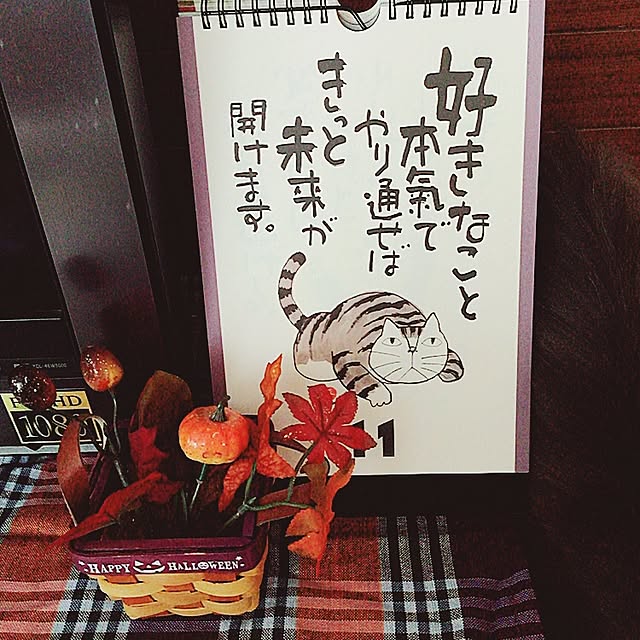 好きなこと
本氣で
やり通せば
きっと
未来が
開けます。
11
HD
1080
HAPPY HALLOWEEN